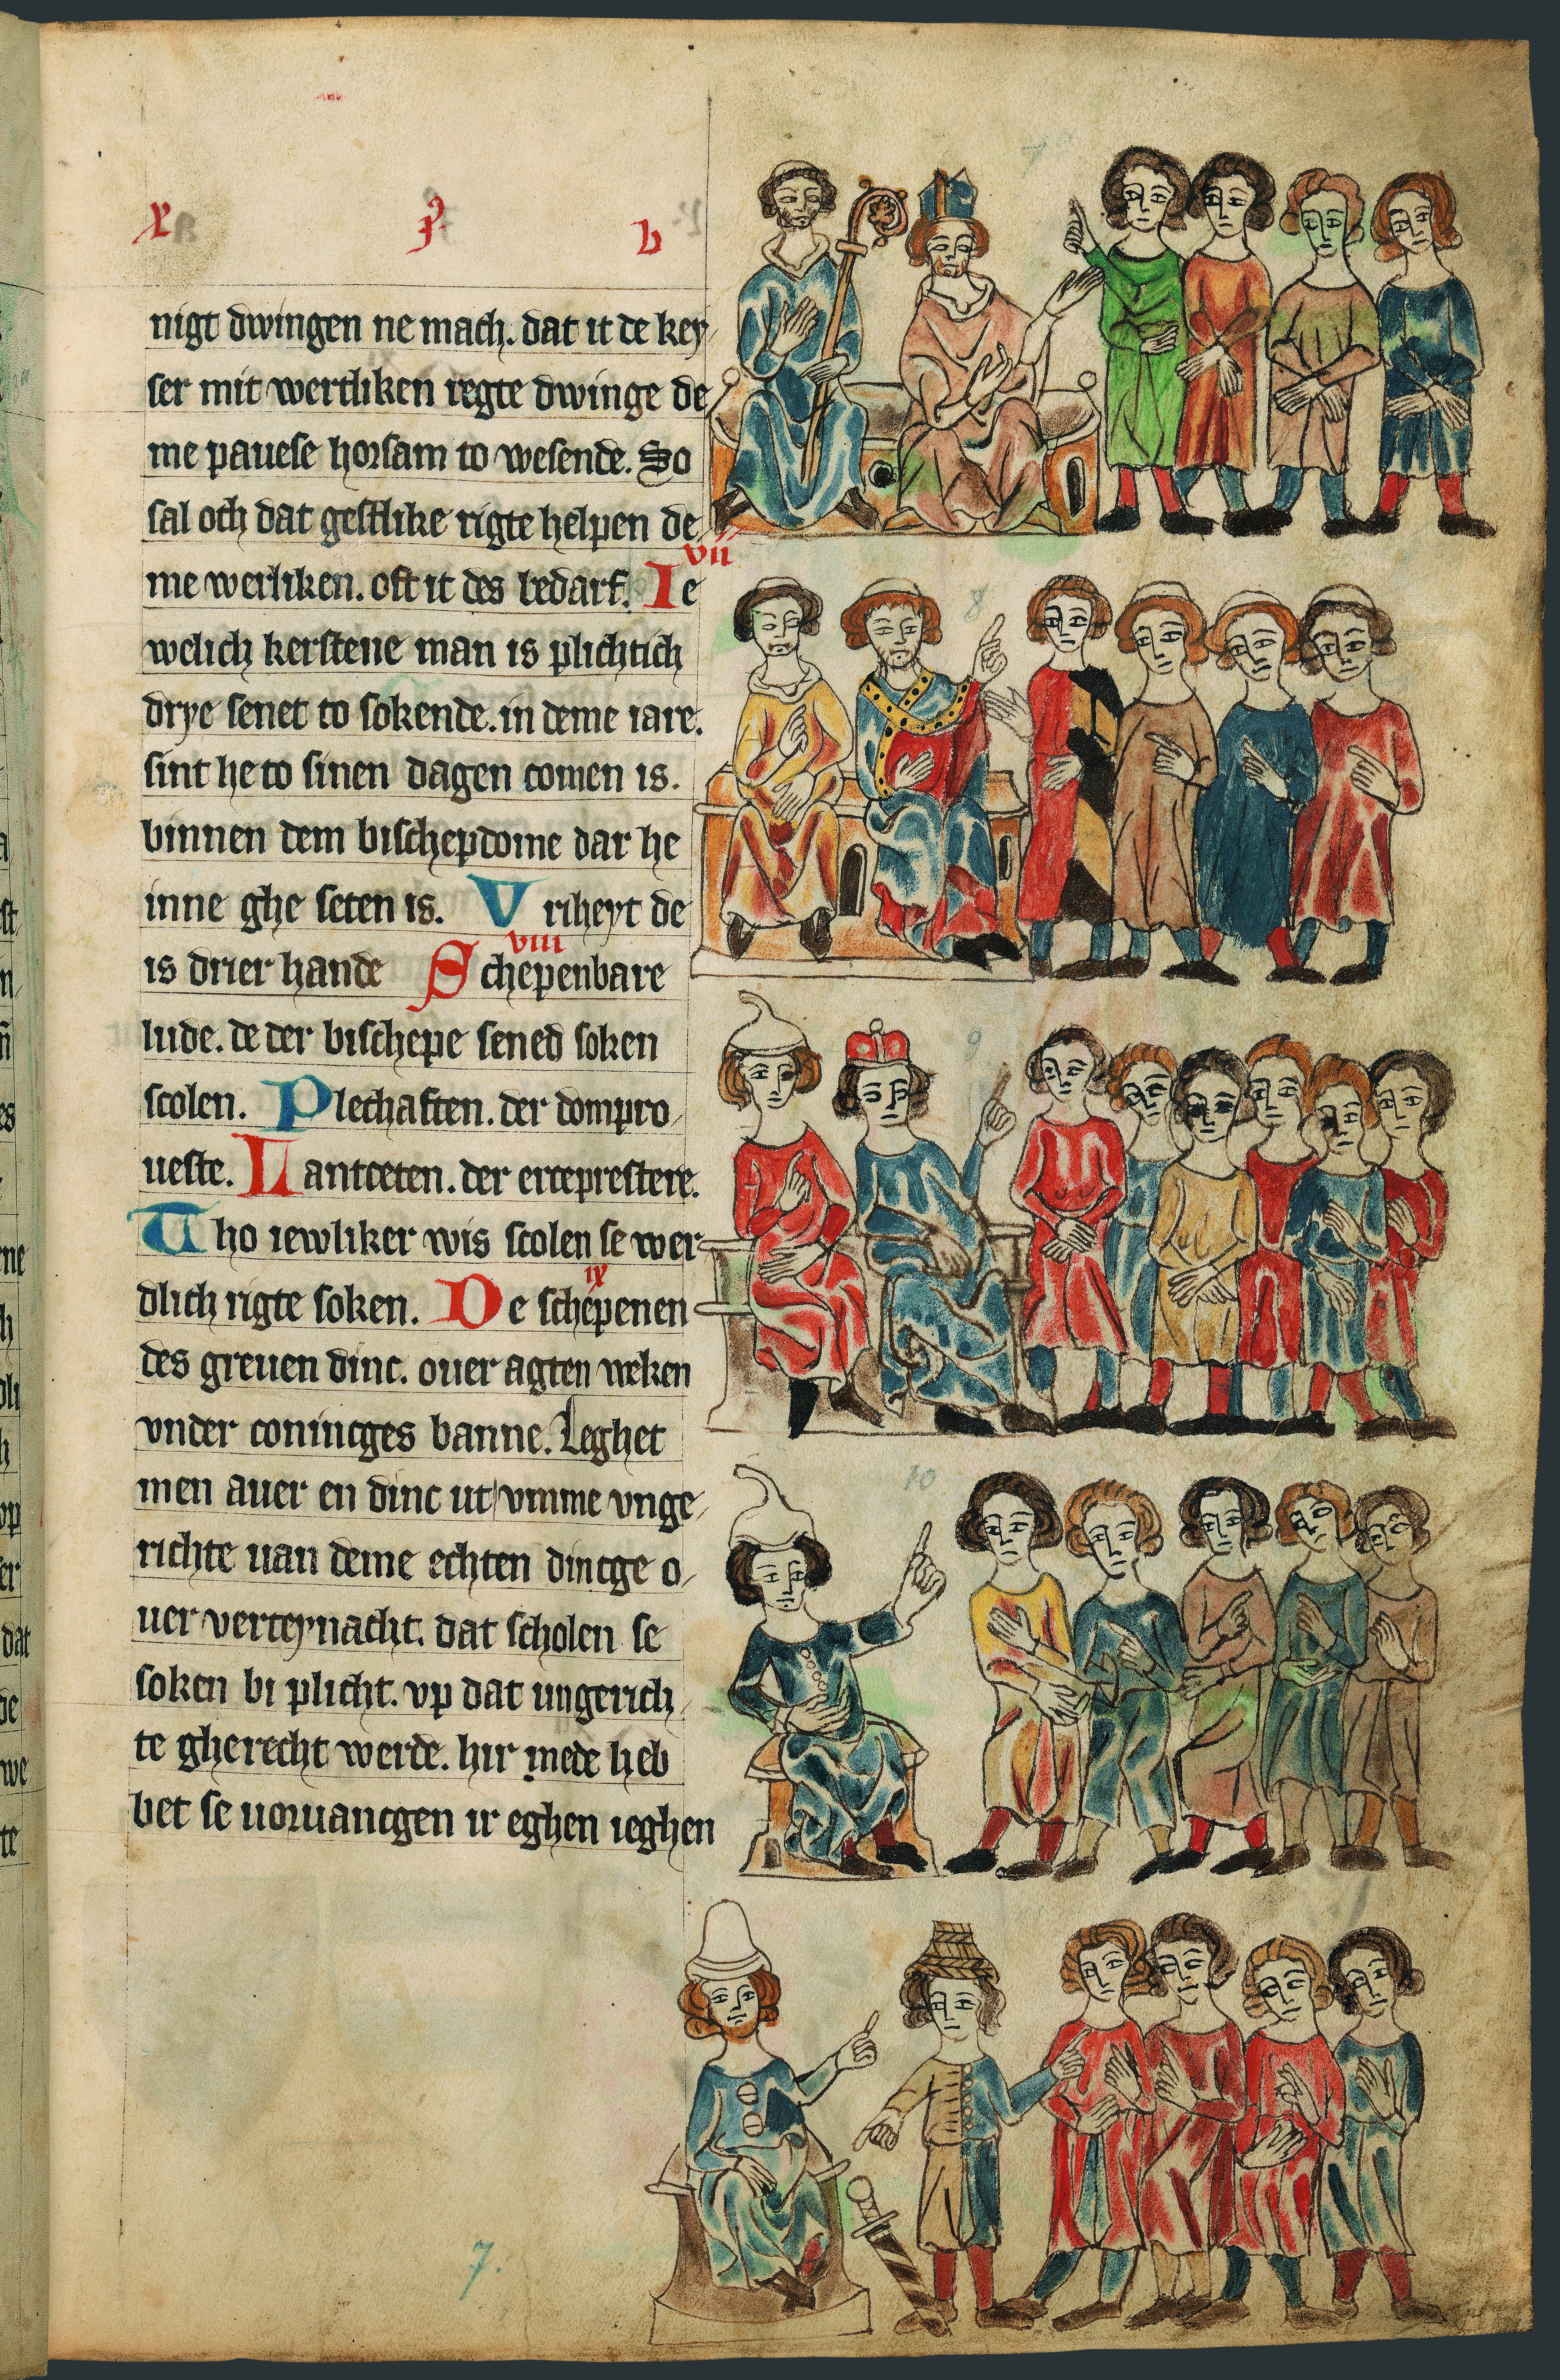 nigt dwingen ne mach. dat it de key
ser mit wertliken regte dwinge de
me pauese horsam to wesende. So
sal och dat gestlike rigte helpen de
me werliken. oft it des bedarf. Ie
vii
welich kerstene man is plichtich
drye senet to sokende. in deme iare.
sint he to sinen dagen comen is.
binnen dem bischepdome dar he
inne ghe seten is. Vriheyt de
viii
is drier hande Schepenbare
lude. de der bischepe sened soken
scolen. Plechaften. der dompro
ueste. Lantceten. der erceprestere.
Tho iewliker wis scolen se wer
ix
dlich rigte soken. De schepenen
des greuen dinc. ouer agten weken
vnder conincges banne. Leghet
men auer en dinc ut vmme vnge
richte uan deme echten dincge o
uer verteynacht. dat scholen se
soken bi plicht. vp dat ungerich
te gherecht werde. hir mede heb
bet se uoruancgen ir eghen ieghen
8
9
10
7.